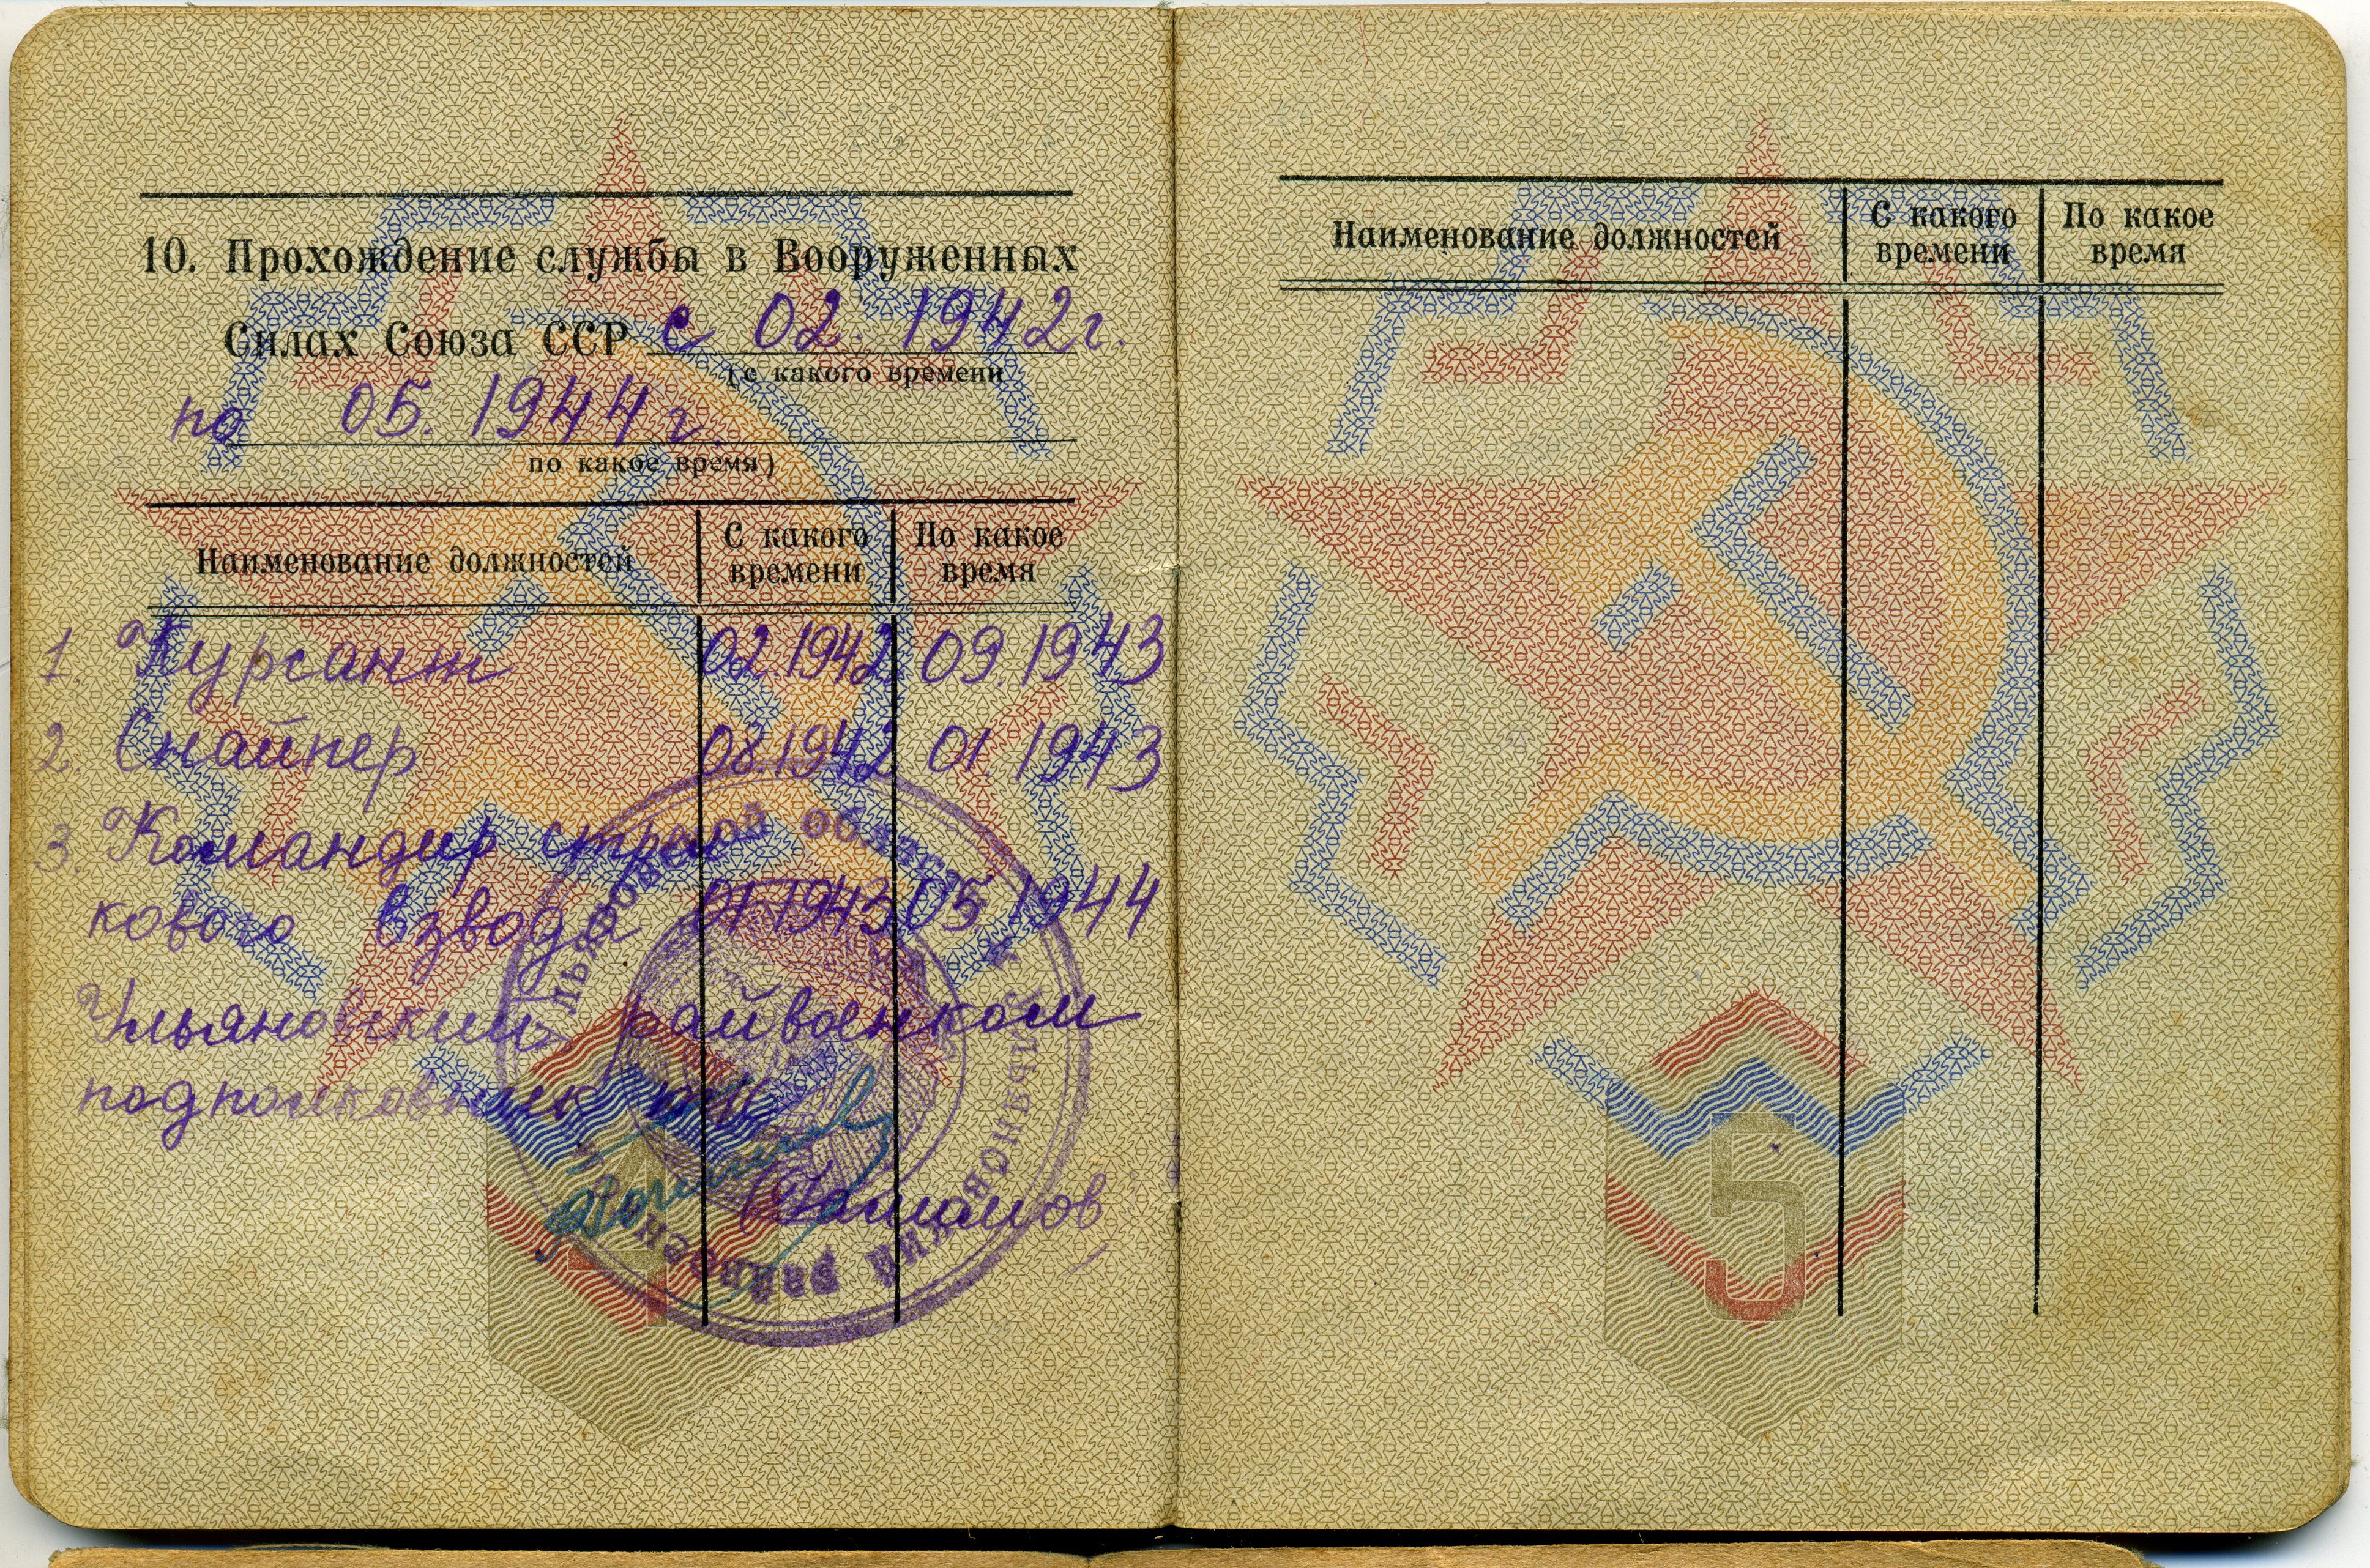 10. Прохождение службы в Вооруженных
Силах Союза ССР с 02. 1942г.
(с какого времени
по 05. 1944г.
по какое время)
Наименование должностей С какого времени По какое время
1. Курсант 02.1942 09.1943
2. Снайпер 08.1942 01.1943
3. Командир стрел
кового взвода 01.1943 05.1944
Ульяновский райвоенком
подполковник
Ульяновской области
Ульяновский
Наименование должностей С какого времени По какое время
4
5